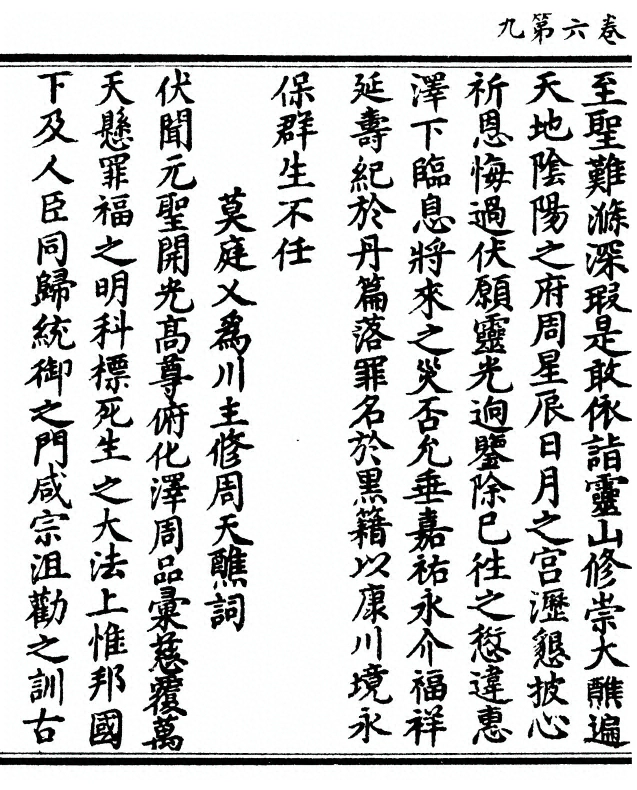 卷六第九
至聖難滌深瑕是敢依詣靈山修崇大醮遍
天地陰陽之府周星辰日月之宮瀝懇披心
祈恩悔過伏願靈光迥鑒除已往之愆違惠
澤下臨息將來之災否允垂嘉祐永介福祥
延壽紀於丹篇落罪名於黑籍以康川境永
保群生不任
莫庭乂爲川主修周天醮詞
伏聞元聖開光高尊俯化澤周品彙慈覆萬
天懸罪福之明科標死生之大法上惟邦國
下及人臣同歸統御之門咸宗沮勸之訓古